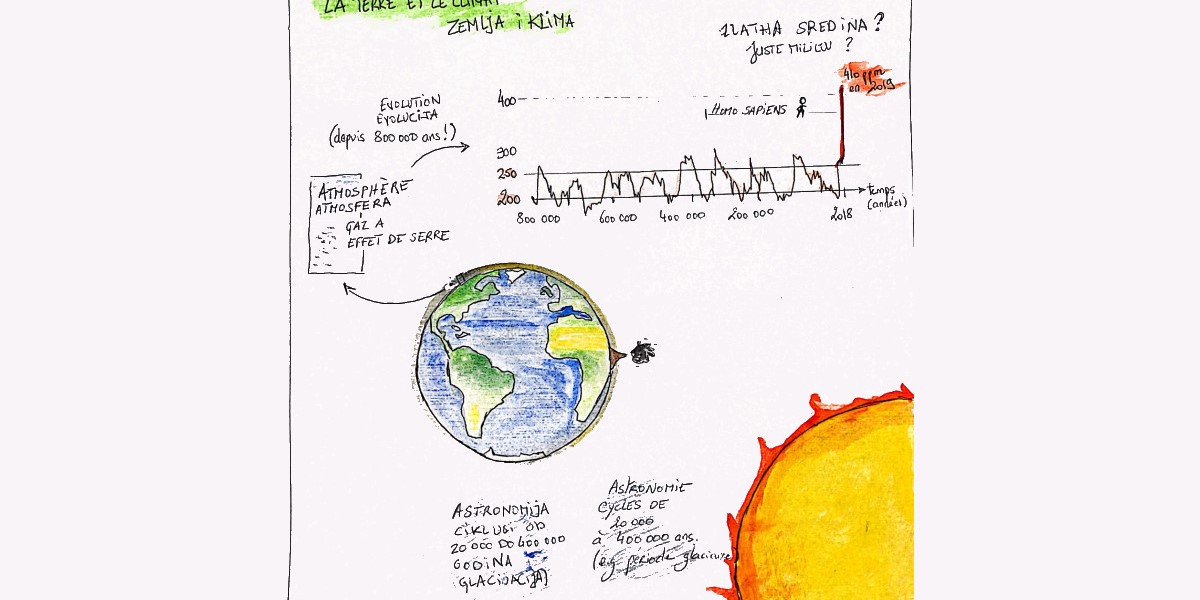 LA TERRE ET LE CLIMAT
ZEMLJA i KLIMA
ZLATNA SREDINA?
JUSTE MILIEU ?
410 ppm
en 2019
400
HOMO SAPIENS
EVOLUTION
EVOLUCIJA
(depuis 800 000 ans!)
300
250
200
800 000
600 000
400 000
200 000
2018
temps
(années)
ATMOSPHÈRE
ATMOSFERA
GAZ A
EFFET DE SERRE
ASTRONOMIJA
CIKLUSI OD
20 000 DO 400 000
GODINA
GLACIJACIJA)
ASTRONOMIE
CYCLES DE
20 000
à 400 000 ans.
(e.g période glaciaire)